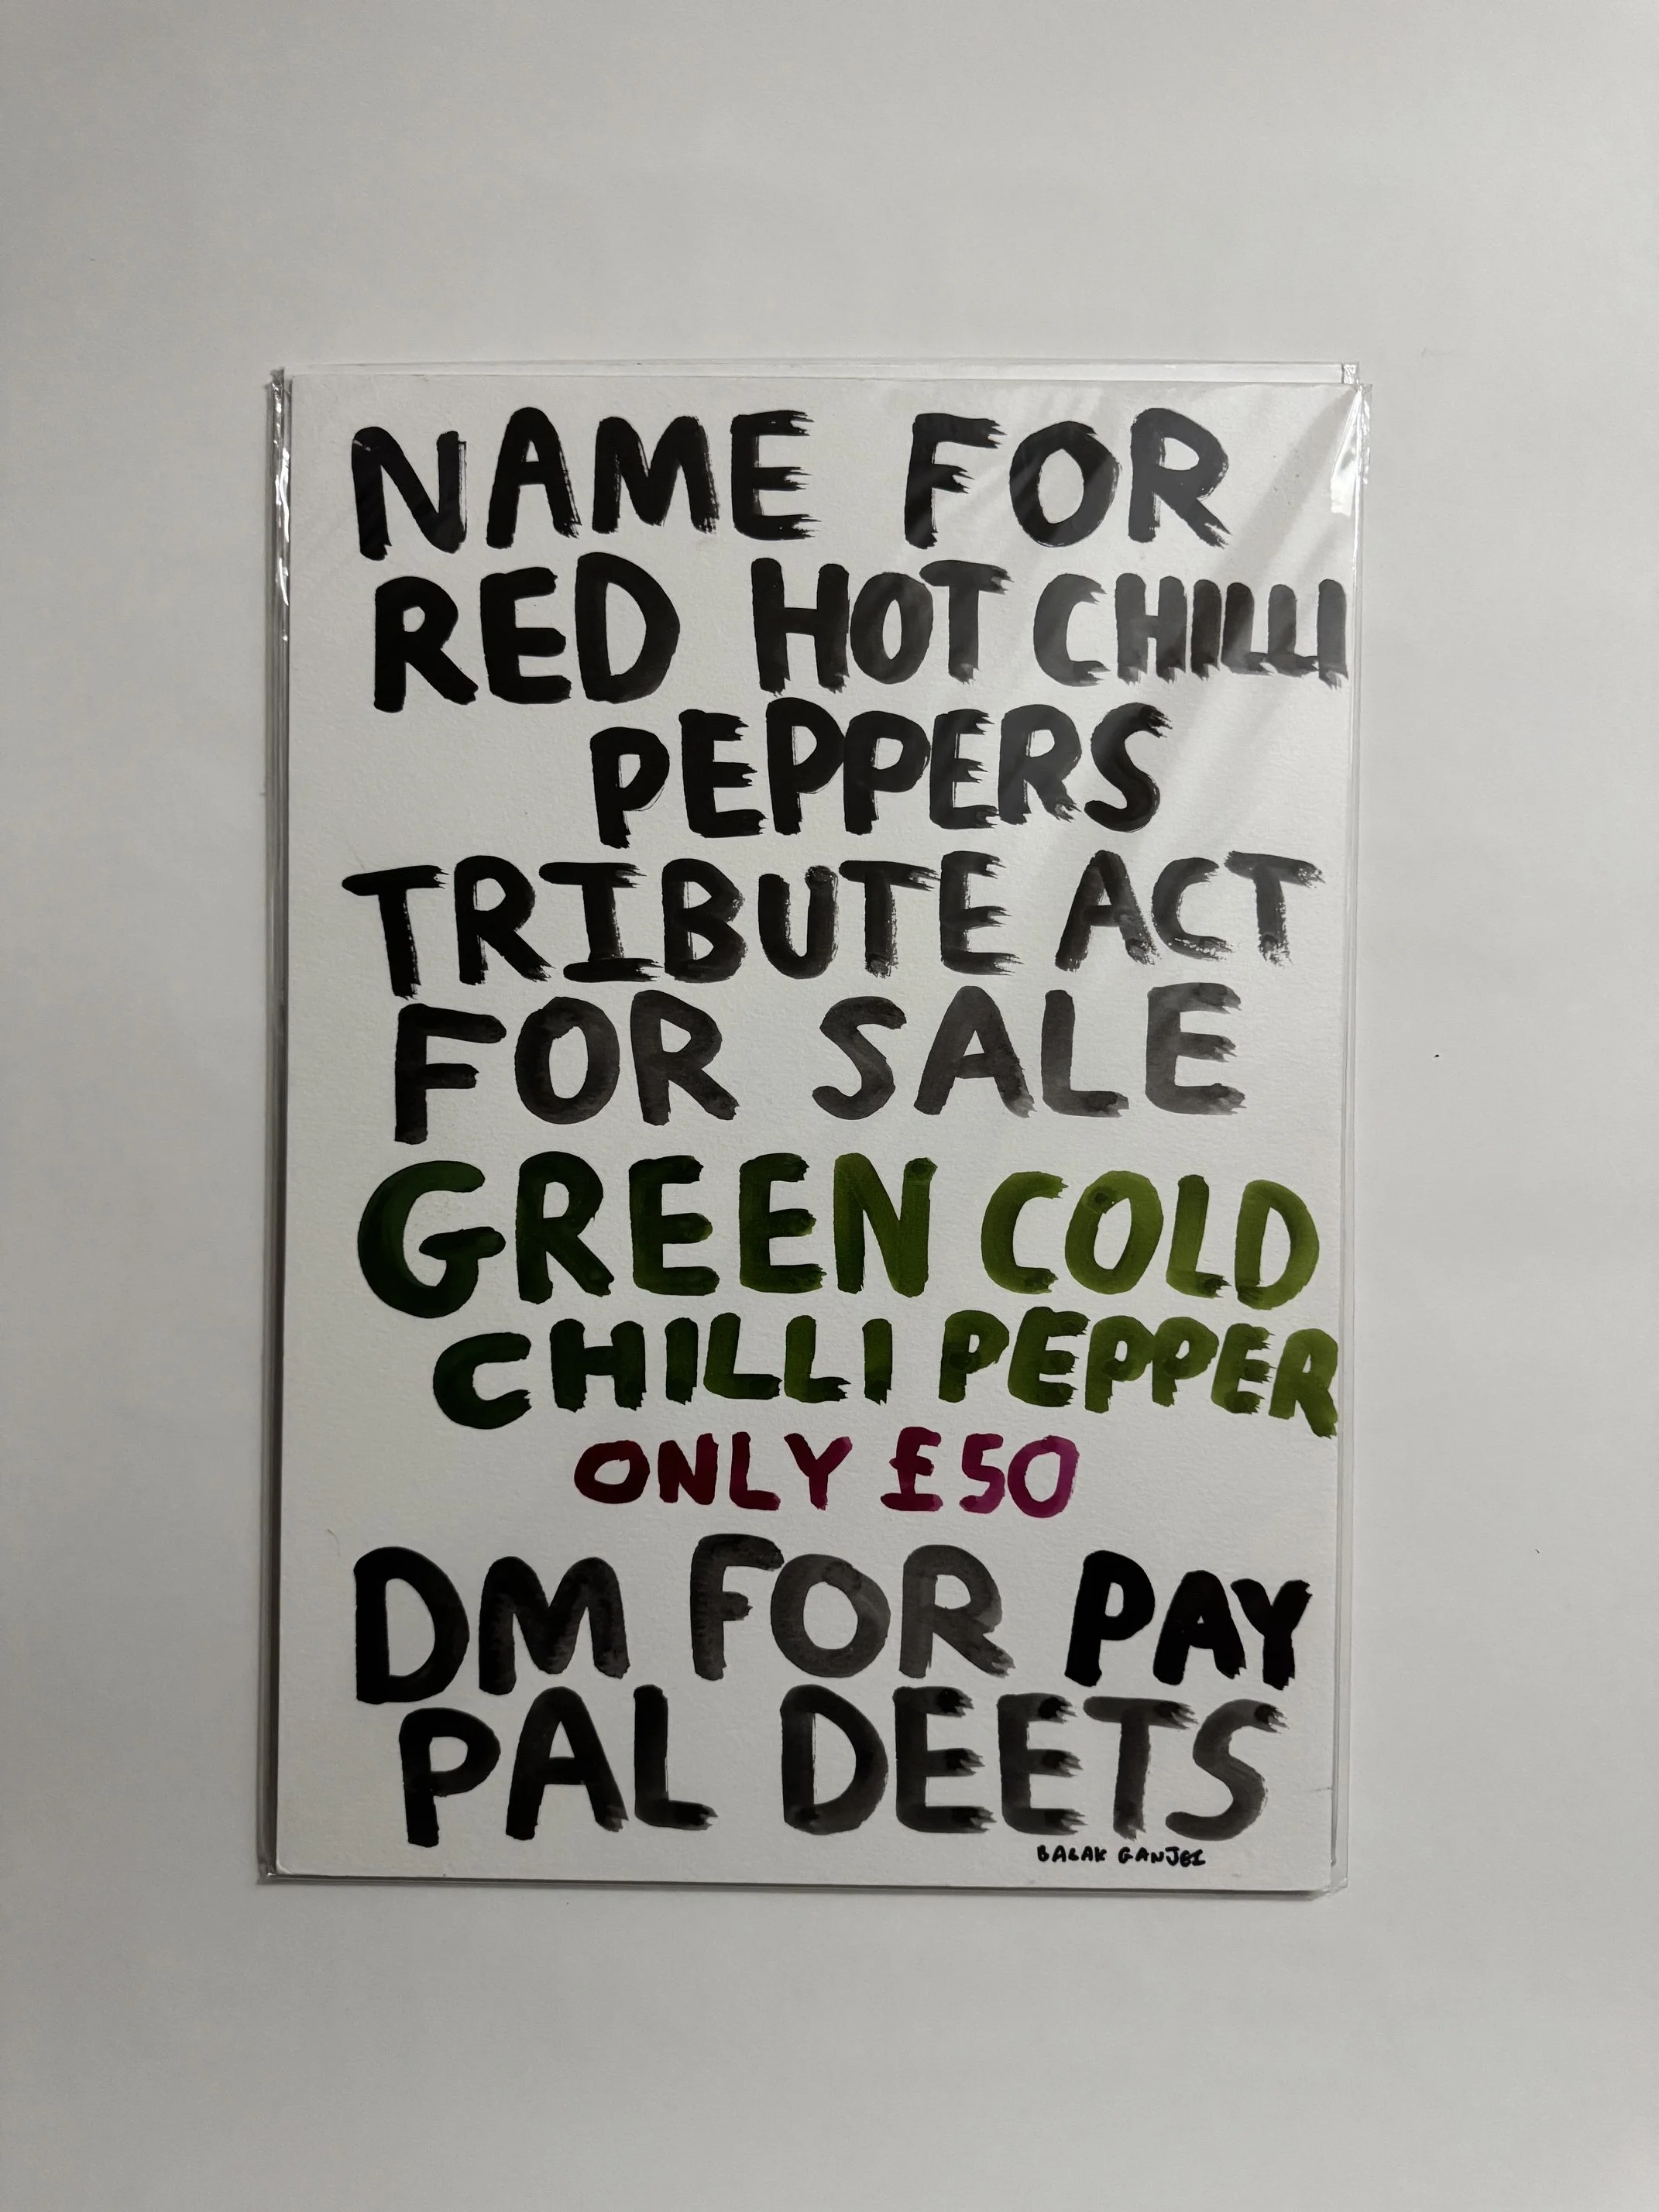 NAME FOR
RED HOT CHILLI
PEPPERS
TRIBUTE ACT
FOR SALE
GREEN COLD
CHILLI PEPPER
ONLY £50
DM FOR PAY
PAL DEETS
BALAK GANJEI